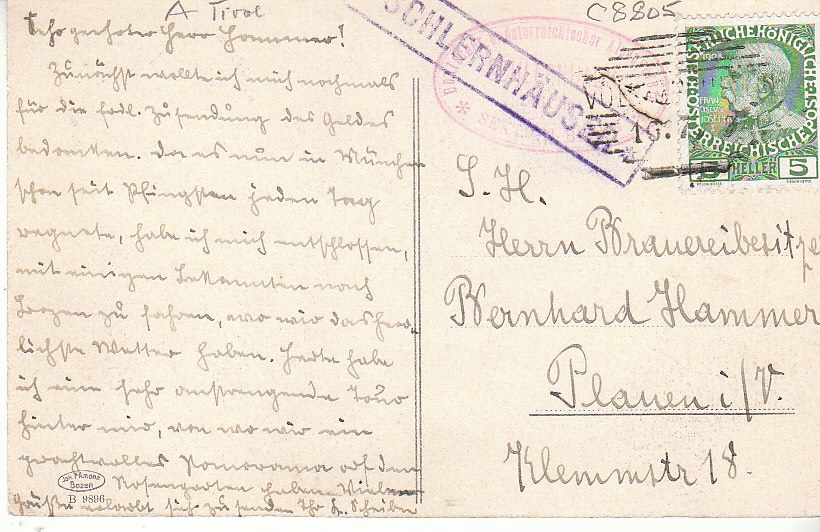 A Tirol
C8805
Sehr geehrter Herr Hammer!
Zunächst wollte ich mich nochmals
für die frdl. Zusendung des Geldes
bedanken. Da es nun in München
schon seit Pfingsten jeden Tag
regnete, habe ich mich entschlossen,
mit einigen Bekannten nach
Bozen zu fahren, wo wir das herr-
lichste Wetter haben. Heute habe
ich eine sehr anstrengende Tour
hinter mir, von wo wir ein
prachtvolles Panorama auf den
Rosengarten haben. Viele
Grüße erlaubt sich zu senden Ihr
SCHLERNHÄUSER
Österreichischer
1908
FRANZ JOSEPH I
5 HELLER 5
16.7
S. H.
Herrn Brauereibesitzer
Bernhard Hammer
Plauen i/V.
Klemmstr 18.
Joh. F. Amonn
Bozen
B 9896